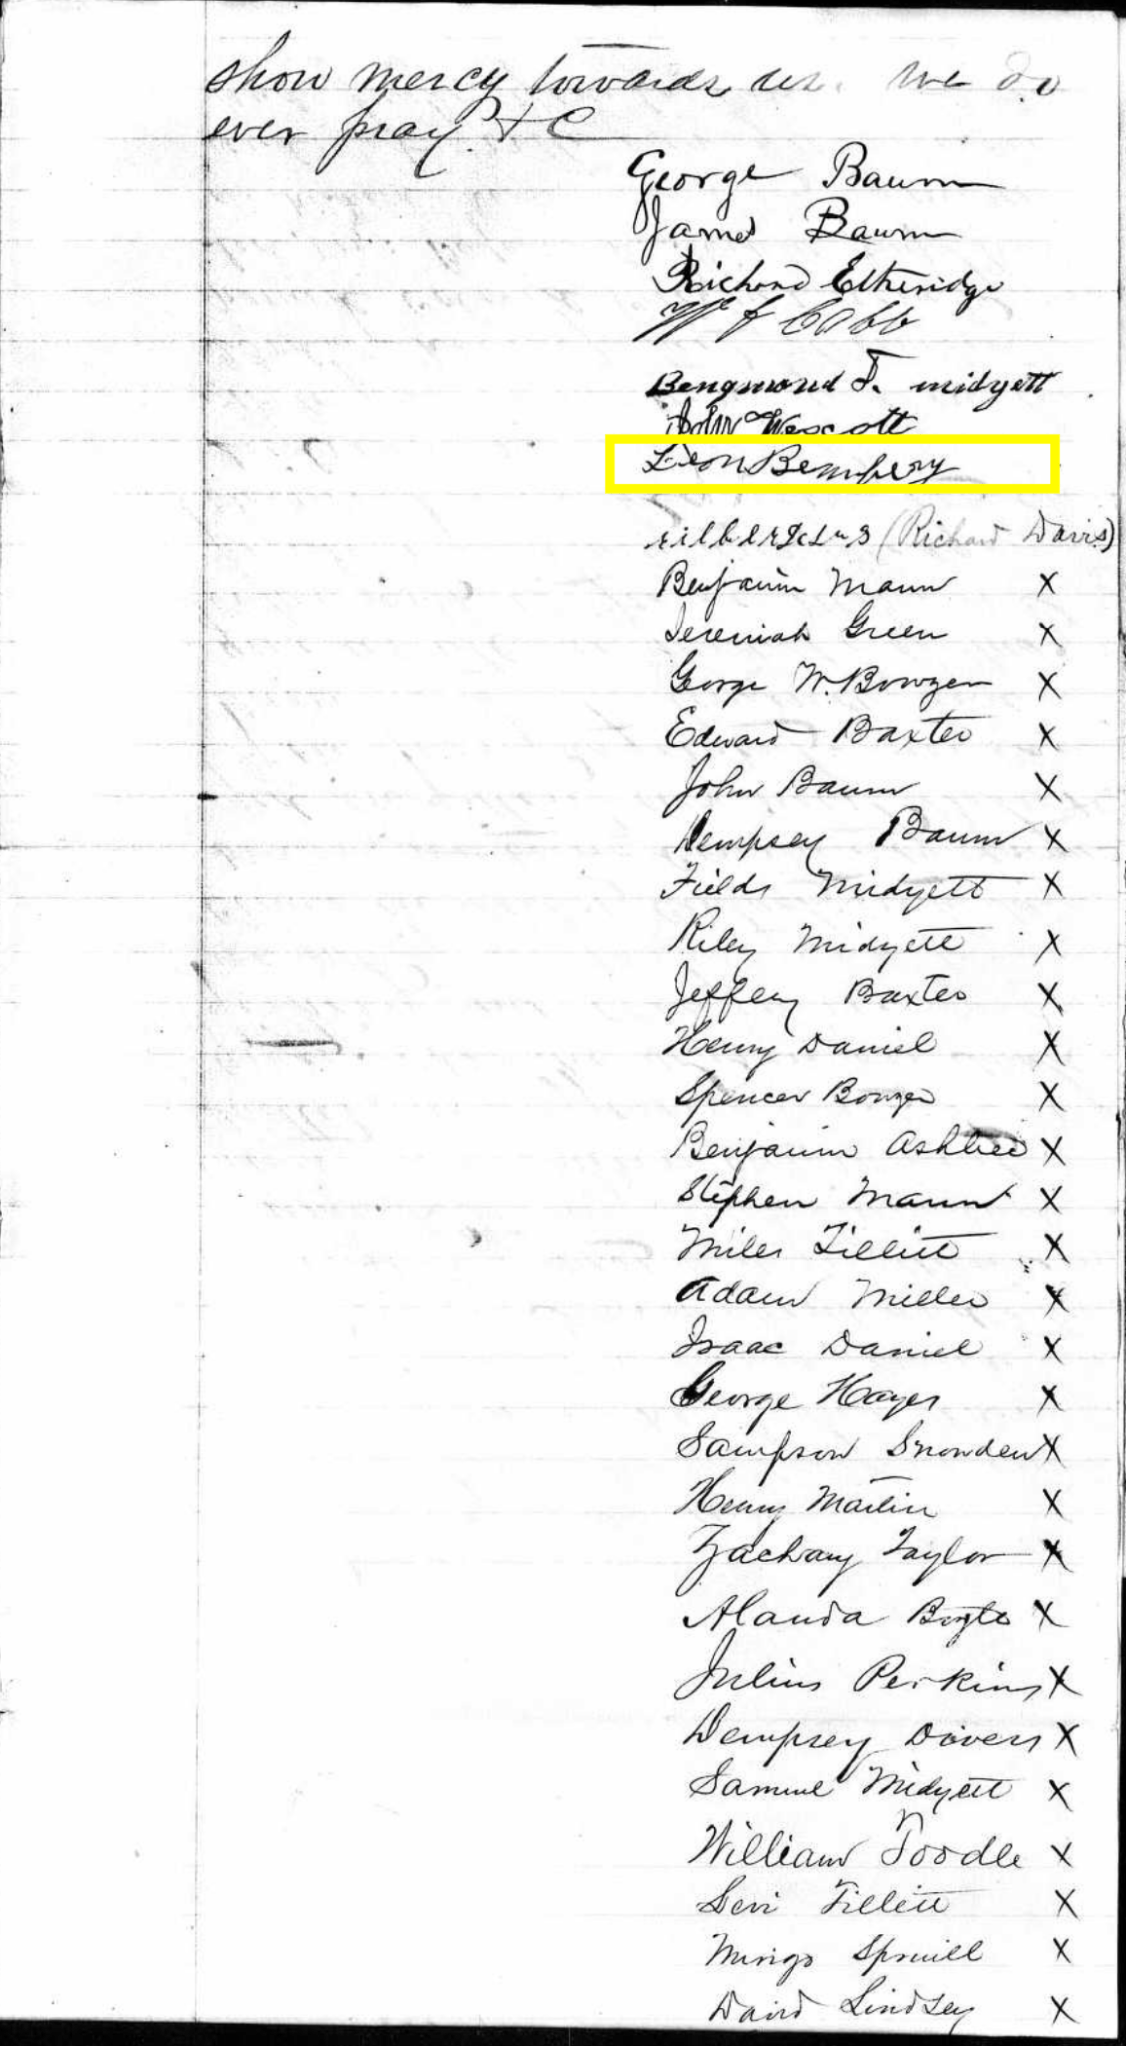 show mercy towards us. we do
ever pray. & C
George Baum
James Baum
Richard Etheridge
W F Cobb
Bengmond T. midyett
John Wescott
Leon Bembery
(Richard Davis)
Benjamin Mann X
Jeremiah Green X
George W. Bowzer X
Edward Baxter X
John Baum X
Dempsey Baum X
Fields Midyett X
Riley Midyett X
Jeffery Baxter X
Henry Daniel X
Spencer Bowzer X
Benjamin Ashbee X
Stephen Mann X
Miles Tillitt X
Adam Miller X
Isaac Daniel X
George Hayes X
Sampson Snowden X
Henry Martin X
Zachary Taylor X
Alanda X
Julius Perkins X
Dempsey Divers X
Samuel Midyett X
William Toodle X
Levi Tillett X
Mingo Spruill X
David Lindsey X